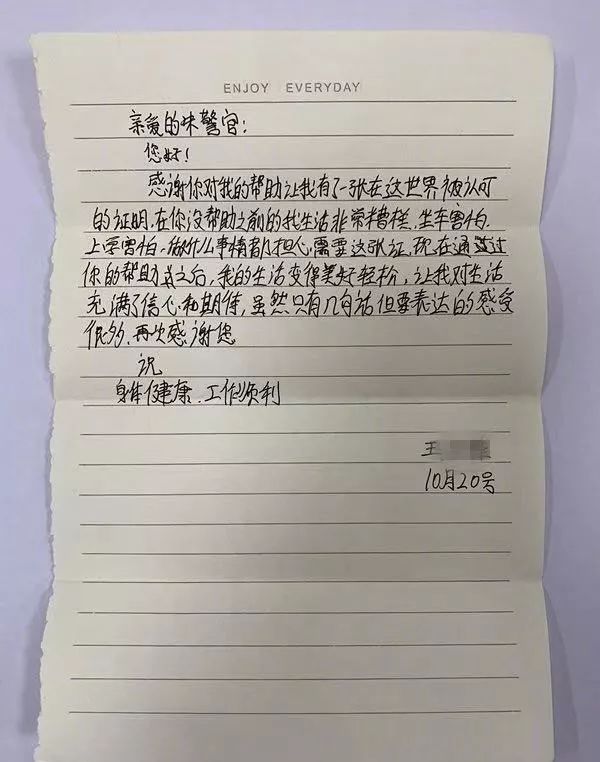 ENJOY EVERYDAY
亲爱的警官：
您好！
感谢你对我的帮助让我有了一张在这世界被认可
的证明.在你没帮助之前的我生活非常糟糕、坐车害怕、
上害怕、做什么事情都担心需要这张证,现在通过
你的帮助之后,我的生活变得美好轻松,让我对生活
充满了信心和期待,虽然只有几句话但要表达的感受
很多、再次感谢您
祝
身体健康、工作顺利
王
10月20号